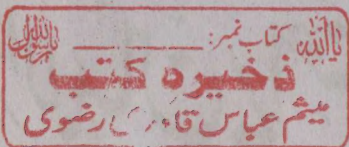 یا اللہ
کتاب نمبر:
یا رسول اللہ
ذخیرہ کتب
میثم عباس قادری رضوی